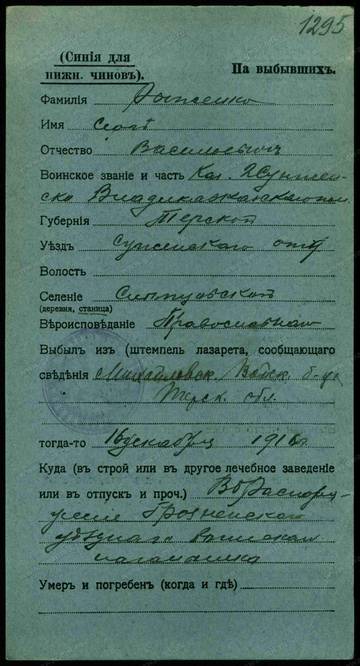 1295
(Синія для
нижн. чиновъ).
На выбывшихъ.
Фамилія
Имя
Отчество Васильевич
Воинское званіе и часть Каз.
Владикавказского
Губернія Терской
Уѣздъ Сунженского отд
Волость
Селеніе Слепцовской
(деревня, станица)
Вѣроисповѣданіе Православнаго
Выбылъ изъ (штемпель лазарета, сообщающаго
свѣдѣнія Михайловск. Войск. б-ца
Терск. обл.
тогда-то 16 декабря 1916
Куда (въ строй или въ другое лечебное заведеніе
или въ отпускъ и проч.) В распоря-
жение Грозненскаго
уѣзднаго воинскаго
начальника
Умеръ и погребенъ (когда и гдѣ)